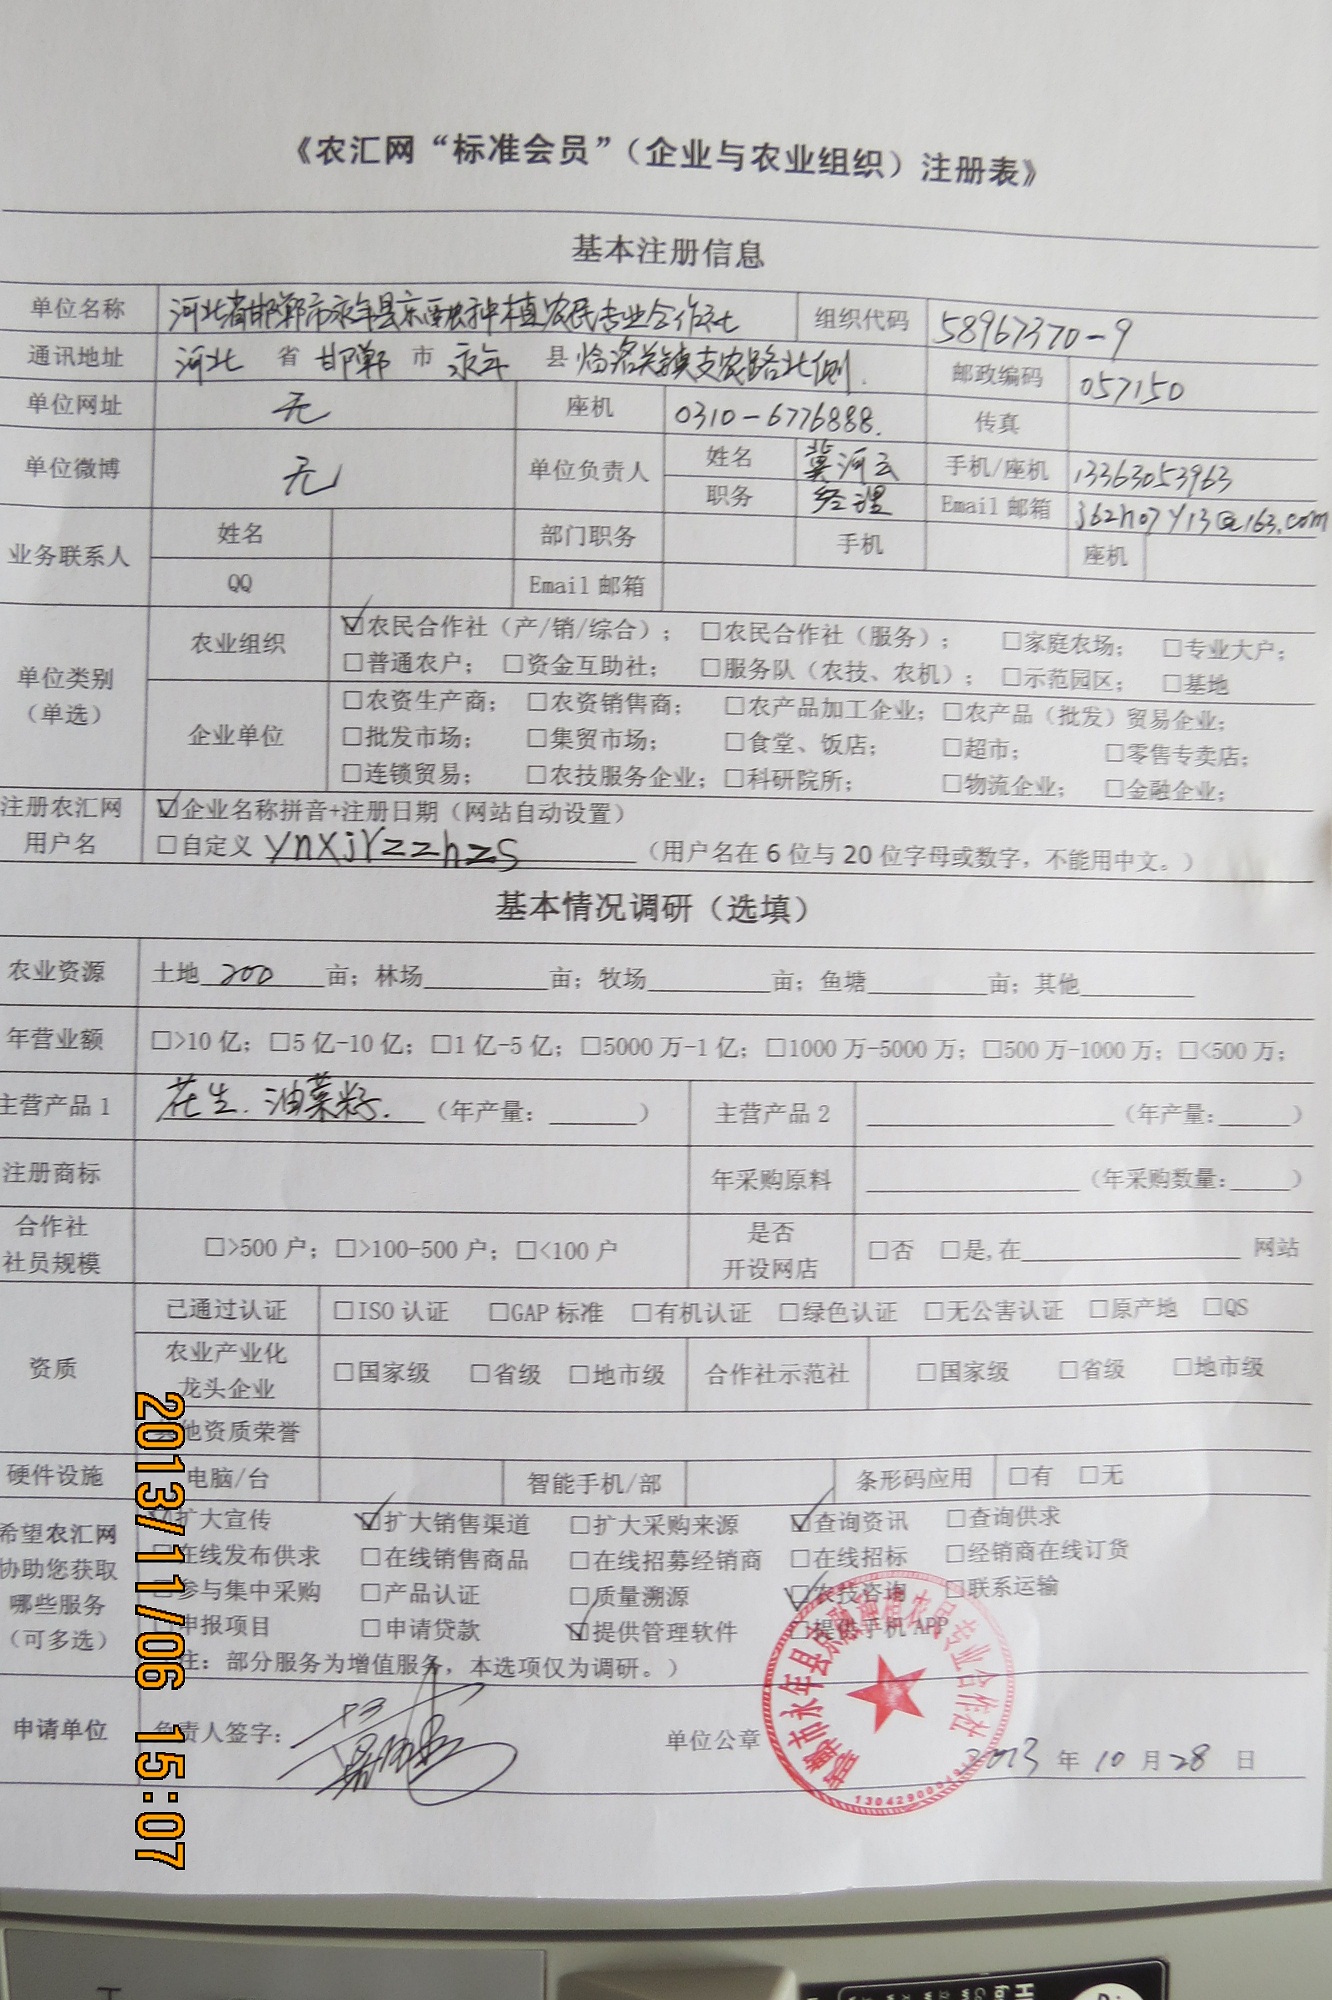 《农汇网“标准会员”（企业与农业组织）注册表》
基本注册信息
单位名称 河北省邯郸市永年县京融种植农民专业合作社 组织代码 58967370-9
通讯地址 河北 省 邯郸 市 永年 县 临洺关镇支农路北侧. 邮政编码 057150
单位网址 无 座机 0310-6776888. 传真
单位微博 无 单位负责人 姓名 冀河云 手机/座机 13363053963
职务 经理 Email 邮箱
业务联系人 姓名 部门职务 手机 座机
QQ Email 邮箱
单位类别（单选） 农业组织 ☑农民合作社（产/销/综合）； □农民合作社（服务）； □家庭农场； □专业大户；
□普通农户； □资金互助社； □服务队（农技、农机）； □示范园区； □基地
企业单位 □农资生产商； □农资销售商； □农产品加工企业； □农产品（批发）贸易企业；
□批发市场； □集贸市场； □食堂、饭店； □超市； □零售专卖店；
□连锁贸易； □农技服务企业； □科研院所； □物流企业； □金融企业；
注册农汇网用户名 ☑企业名称拼音+注册日期（网站自动设置）
□自定义 ynxjrzzhzs （用户名在 6 位与 20 位字母或数字，不能用中文。）
基本情况调研（选填）
农业资源 土地 200 亩；林场 亩；牧场 亩；鱼塘 亩；其他
年营业额 □>10 亿；□5 亿-10 亿；□1 亿-5 亿；□5000 万-1 亿；□1000 万-5000 万；□500 万-1000 万；□<500 万；
主营产品 1 花生. 油菜籽. （年产量： ） 主营产品 2 （年产量： ）
注册商标 年采购原料 （年采购数量： ）
合作社社员规模 □>500 户；□>100-500 户；□<100 户 是否开设网店 □否 □是,在 网站
资质 已通过认证 □ISO 认证 □GAP 标准 □有机认证 □绿色认证 □无公害认证 □原产地 □QS
农业产业化龙头企业 □国家级 □省级 □地市级 合作社示范社 □国家级 □省级 □地市级
其他资质荣誉
硬件设施 电脑/台 智能手机/部 条形码应用 □有 □无
希望农汇网协助您获取哪些服务（可多选） ☑扩大宣传 ☑扩大销售渠道 □扩大采购来源 ☑查询资讯 □查询供求
□在线发布供求 □在线销售商品 □在线招募经销商 □在线招标 □经销商在线订货
□参与集中采购 □产品认证 □质量溯源 ☑农技咨询 □联系运输
□申报项目 □申请贷款 ☑提供管理软件 □提供手机 APP
注：部分服务为增值服务，本选项仅为调研。）
申请单位 负责人签字： 单位公章 2013 年 10 月 28 日
邯郸市永年县京融种植农民专业合作社
2013/11/06 15:07